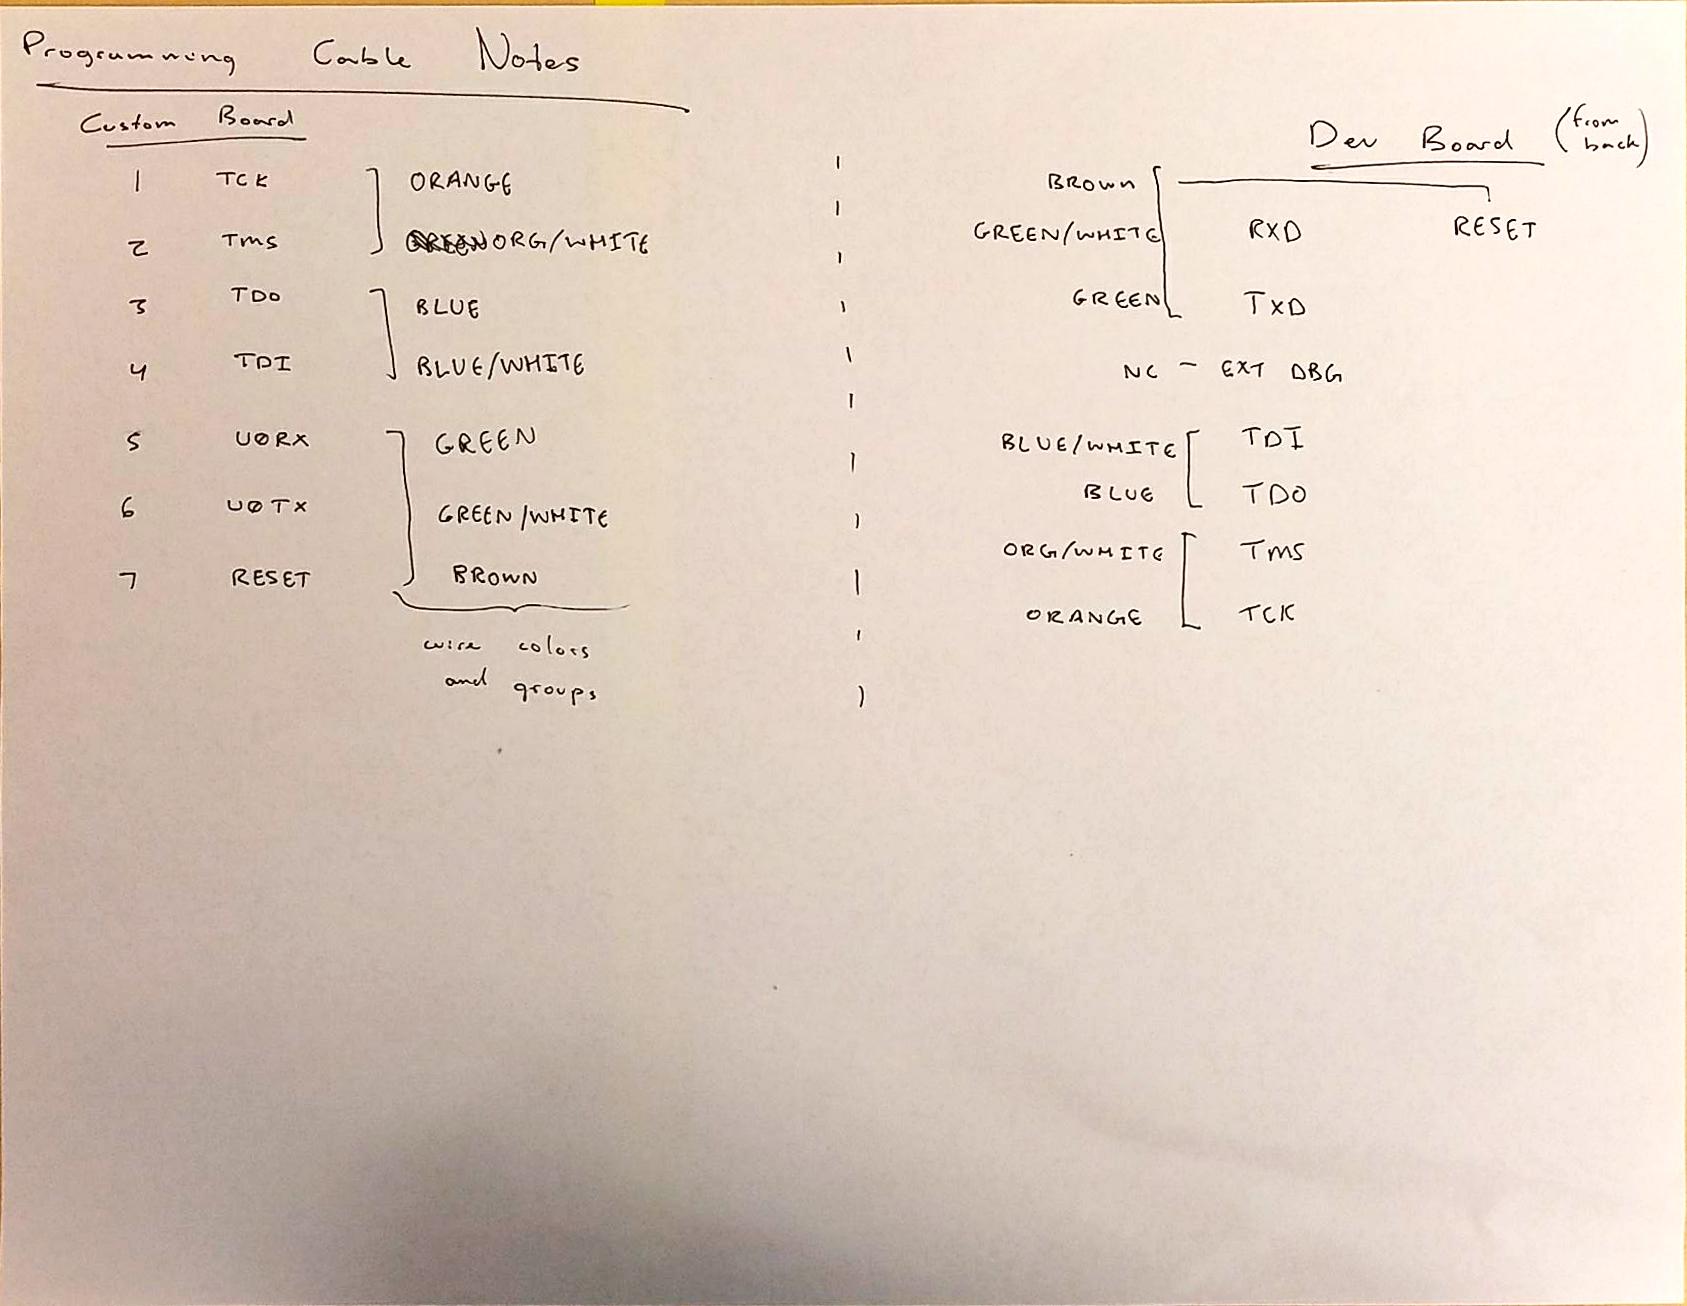 Programming Cable Notes
Custom Board
1 TCK ORANGE
2 TMS ORG/WHITE
3 TDO BLUE
4 TDI BLUE/WHITE
5 UØRX GREEN
6 UØTX GREEN/WHITE
7 RESET BROWN
wire colors
and groups
Dev Board (from back)
BROWN
GREEN/WHITE RXD RESET
GREEN TXD
NC - EXT DBG
BLUE/WHITE TDI
BLUE TDO
ORG/WHITE TMS
ORANGE TCK